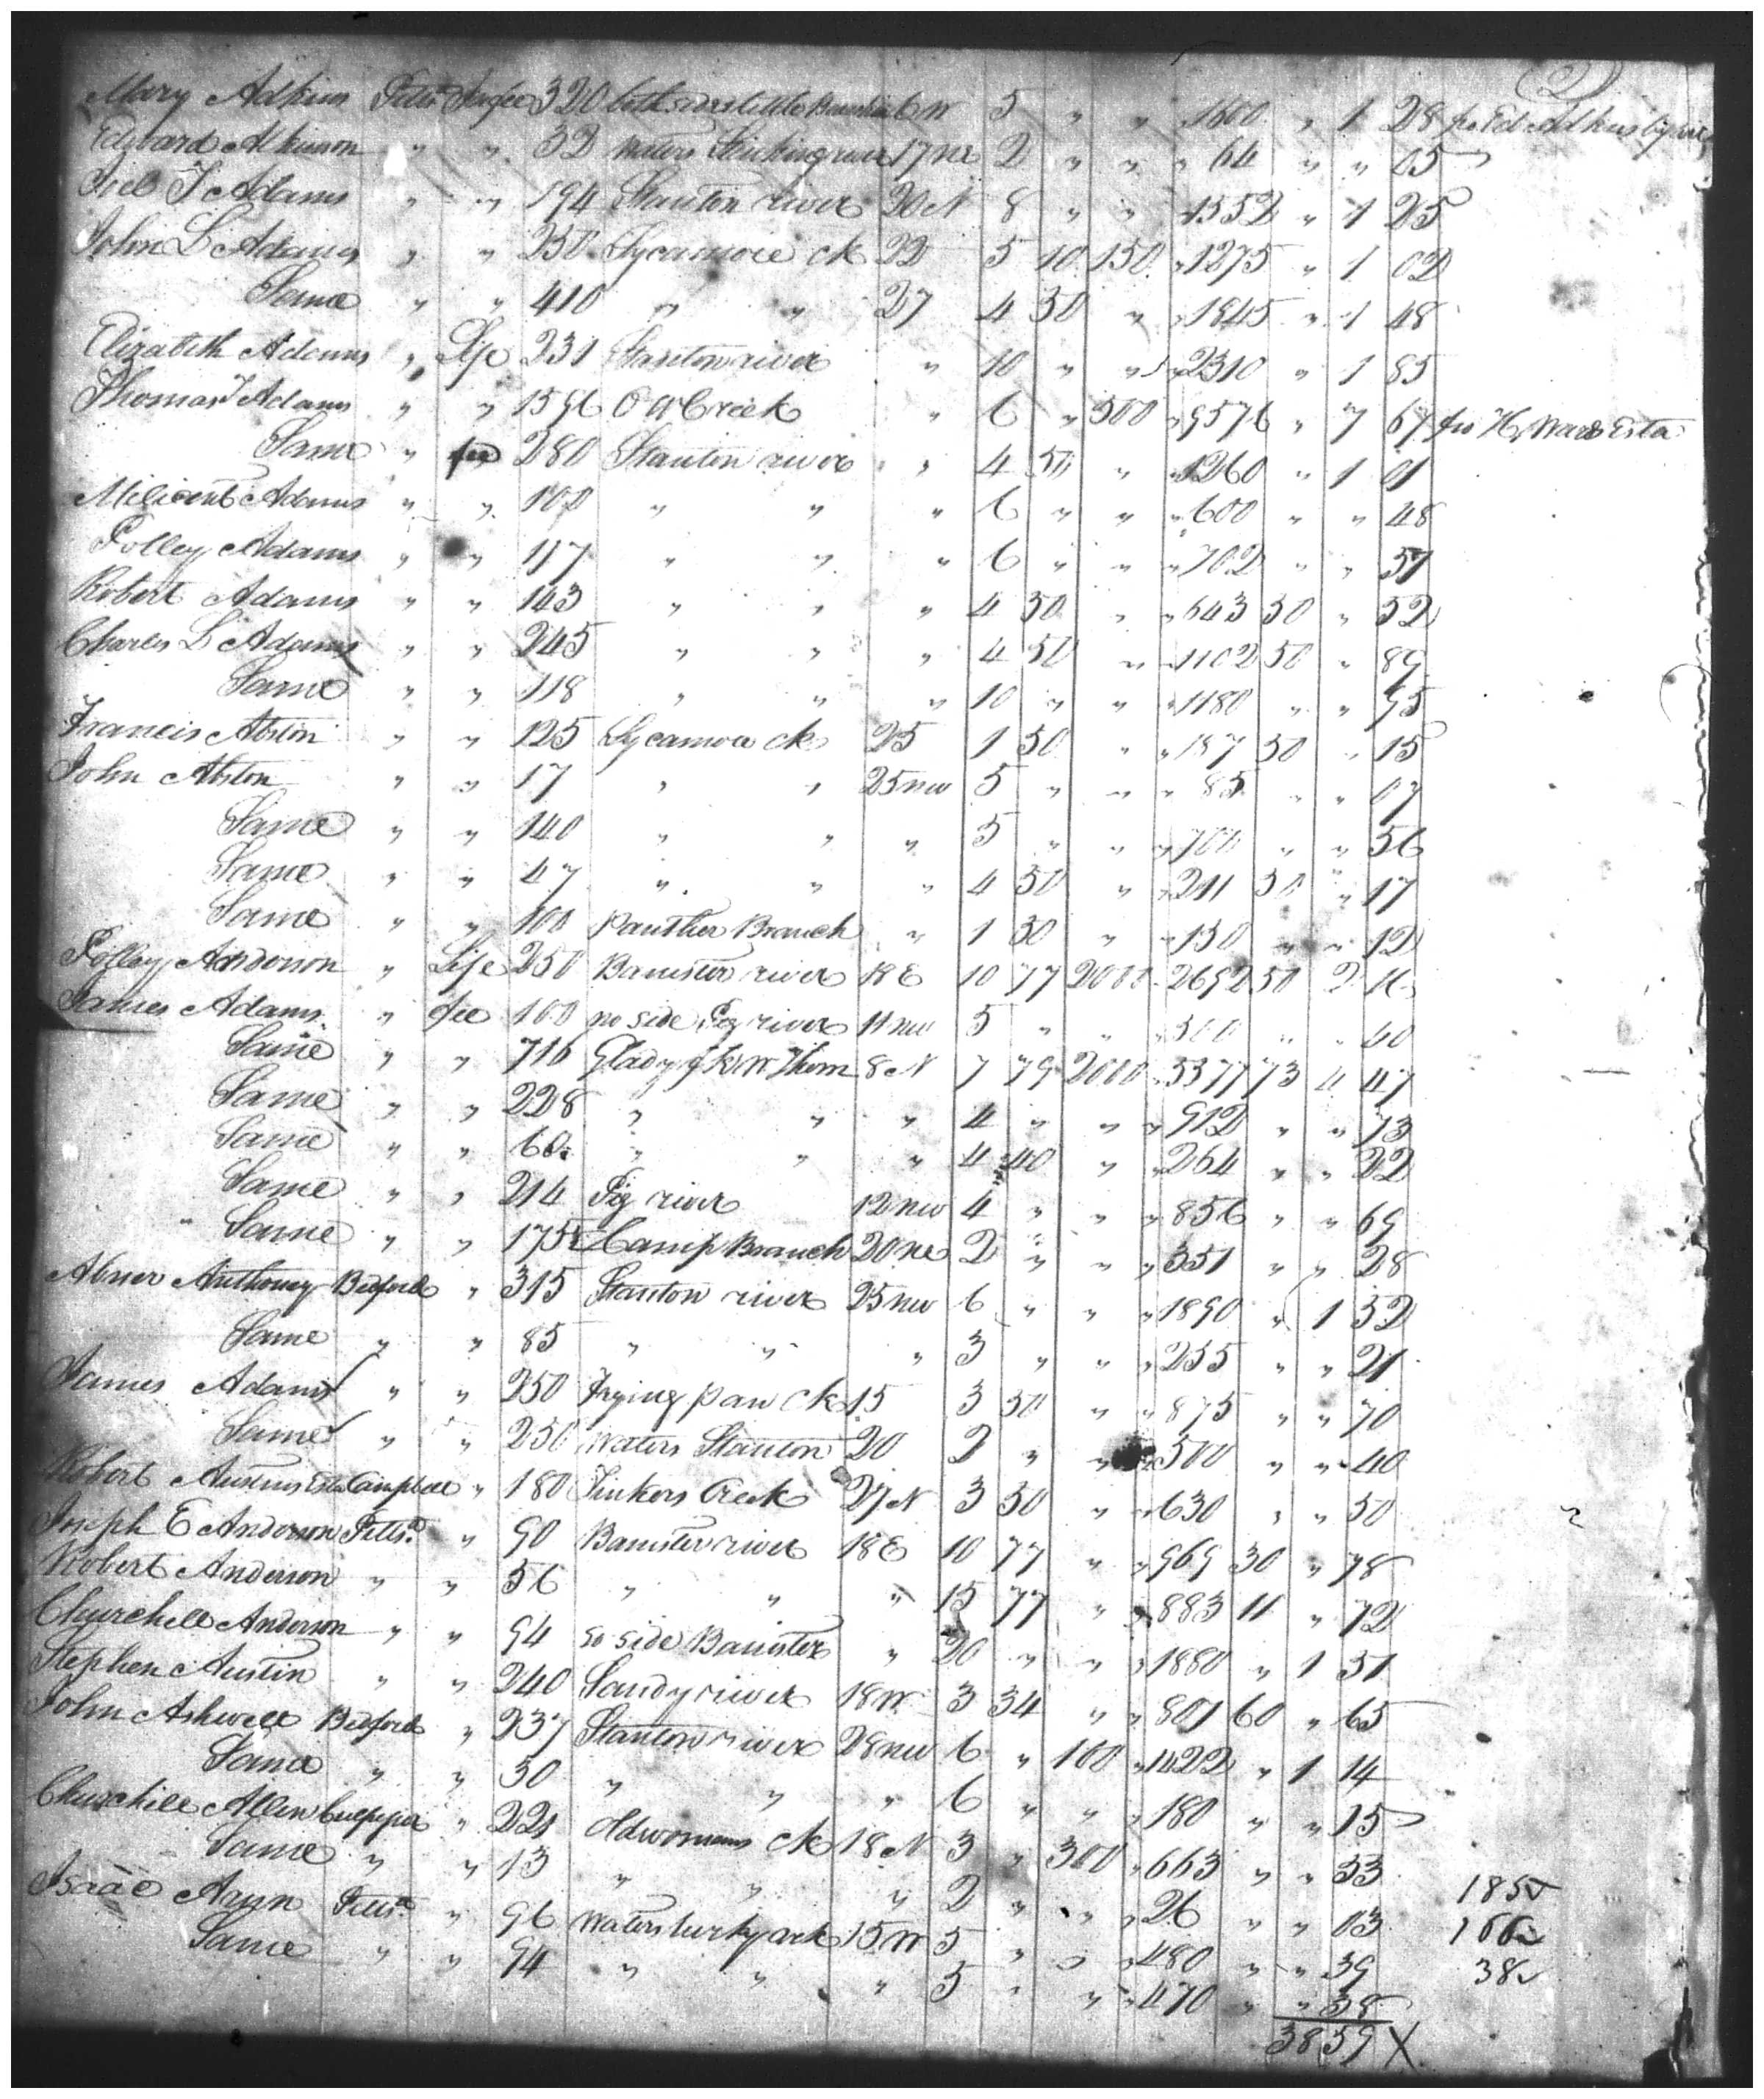 (2)
Mary Adkins Pitts fee 320 both sides little 6 W 5 " " 1600 " 1 28 pr Ed Adkins
Edward Atkinson " " 32 Waters Stinking river 17 NE 2 " " " 64 " " 05
T Adams " " 194 Stanton river 20 N 8 " " 1552 " 1 25
John L Adams " " 250 Sycamore ck 22 5 10 150 " 1275 " 1 02
Same " " 410 " " 27 4 50 " " 1845 " 1 48
Elizabeth Adams " Life 231 Stanton river " 10 " " 2310 " 1 85
Thomas Adams " " 1596 Creek " 6 " 500 " 9576 " 7 67 H Ward Esta
Same " fee 280 Stanton river " " 4 50 " " 1260 " 1 01
Milicent Adams " " 100 " " " 6 " " " 600 " " 48
Polley Adams " " 117 " " " 6 " " " 702 " " 57
Robert Adams " " 143 " " " 4 50 " " 643 50 " 52
Charles L Adams " " 245 " " " 4 50 " " 1102 50 " 89
Same " " 118 " " " 10 " " " 1180 " " 95
Francis Abston " " 125 Sycamore ck 25 1 50 " " 187 50 " 15
John Abston " " 17 " " 25 NW 5 " " " 85 " " 07
Same " " 140 " " " 5 " " " 700 " " 56
Same " " 47 " " " 4 50 " " 211 50 " 17
Same " " 100 Panther Branch " 1 50 " " 150 " " 12
Polley Anderson " Life 250 Banister river 18 E 10 77 2000 " 2692 50 2 16
James Adams " fee 100 no side Pig river 11 NW 5 " " " 500 " " 40
Same " " 716 Glady fk W Thorn 8 N 7 79 2000 " 5577 73 4 47
Same " " 228 " " " 4 " " " 912 " " 73
Same " " 60 " " " 4 40 " " 264 " " 22
Same " " 214 Pig river 12 NW 4 " " " 856 " " 69
Same " " 175½ Camp Branch 20 NE 2 " " " 351 " " 28
Abner Anthoney Bedford " 315 Stanton river 25 NW 6 " " " 1890 " 1 52
Same " " 85 " " " 3 " " " 255 " " 21
James Adams " " 250 Frying pan ck 15 3 50 " " 875 " " 70
Same " " 250 Waters Stanton 20 2 " " " 500 " " 40
Robert Austins Esta Campbell " 180 Tinkers Creek 27 N 3 50 " " 630 " " 50
Joseph E Anderson Pitts. " 90 Banister river 18 E 10 77 " " 969 30 " 78
Robert Anderson " " 56 " " " 15 77 " " 883 11 " 72
Churchill Anderson " " 94 so side Banister " 20 " " " 1880 " 1 51
Stephen Austin " " 240 Sandy river 18 W 3 34 " " 801 60 " 65
John Ashwell Bedford " 237 Stanton river 28 NW 6 " 100 " 1422 " 1 14
Same " " 30 " " " 6 " " " 180 " " 15
Churchill Allen Culpeper " 221 Oldwomans ck 18 N 3 " 300 " 663 " " 53
Same " " 13 " " " 2 " " " 26 " " 03 185
Isaac Aaron Pitts. " 96 Waters turkycock 15 W 5 " " " 480 " " 39 166
Same " " 94 " " " 5 " " " 470 " " 38 38
3859 X